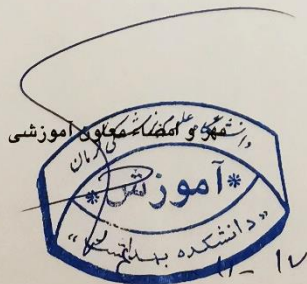 مهر و امضاء معاون آموزشی
دانشگاه علوم پزشکی کرمان
*آموزش*
"دانشکده بهداشت"